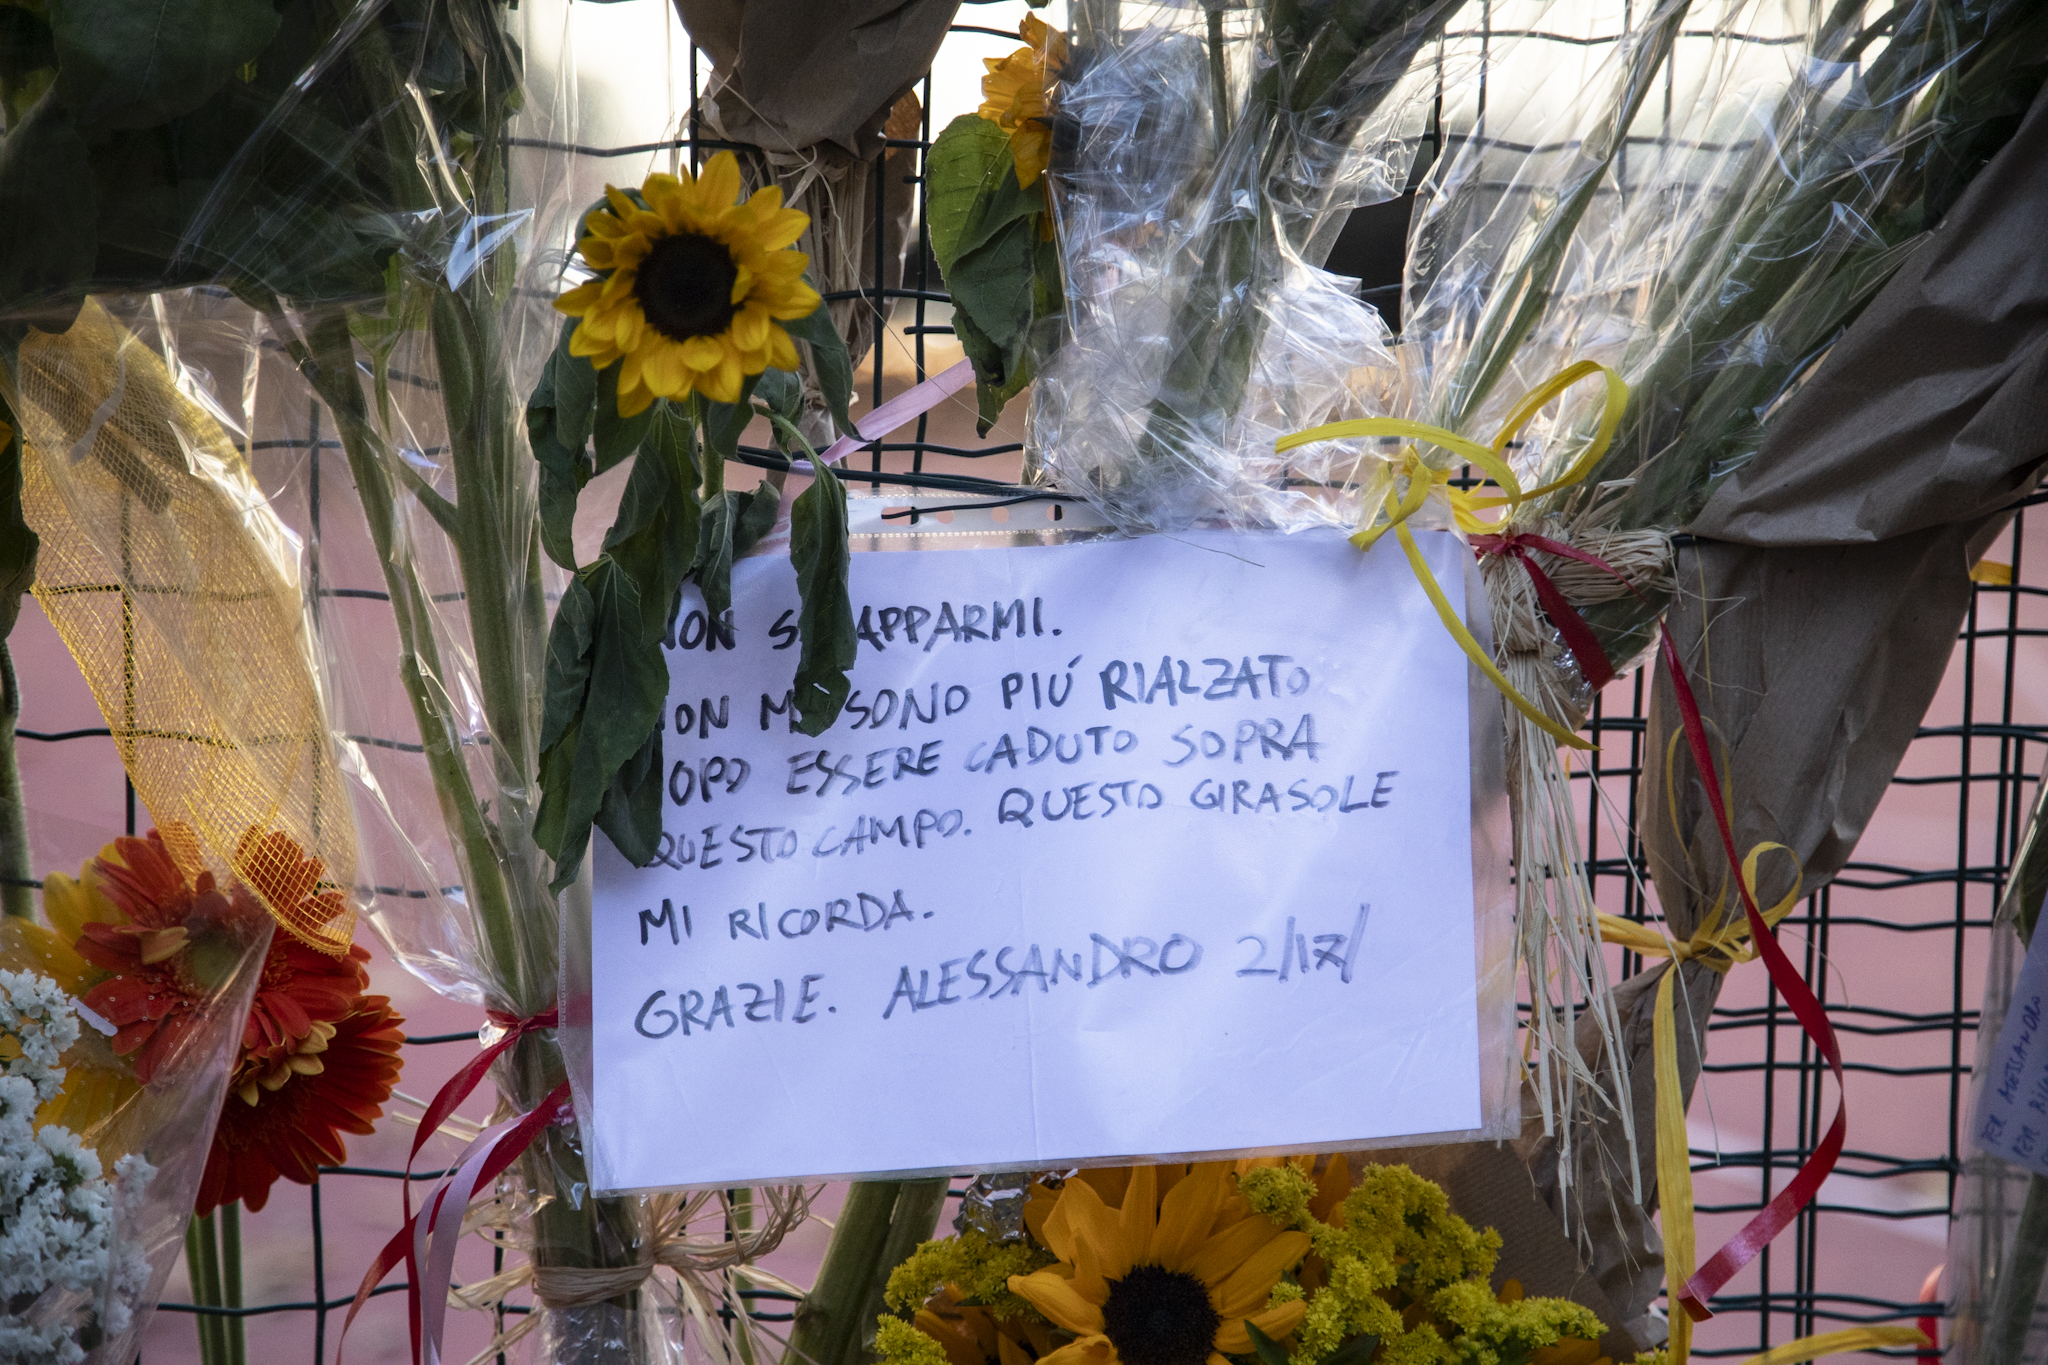 NON S APPARMI.
NON M SONO PIÚ RIALZATO
DOPO ESSERE CADUTO SOPRA
QUESTO CAMPO. QUESTO GIRASOLE
MI RICORDA.
GRAZIE. ALESSANDRO 2/17/
PER ALESSANDRO
PER